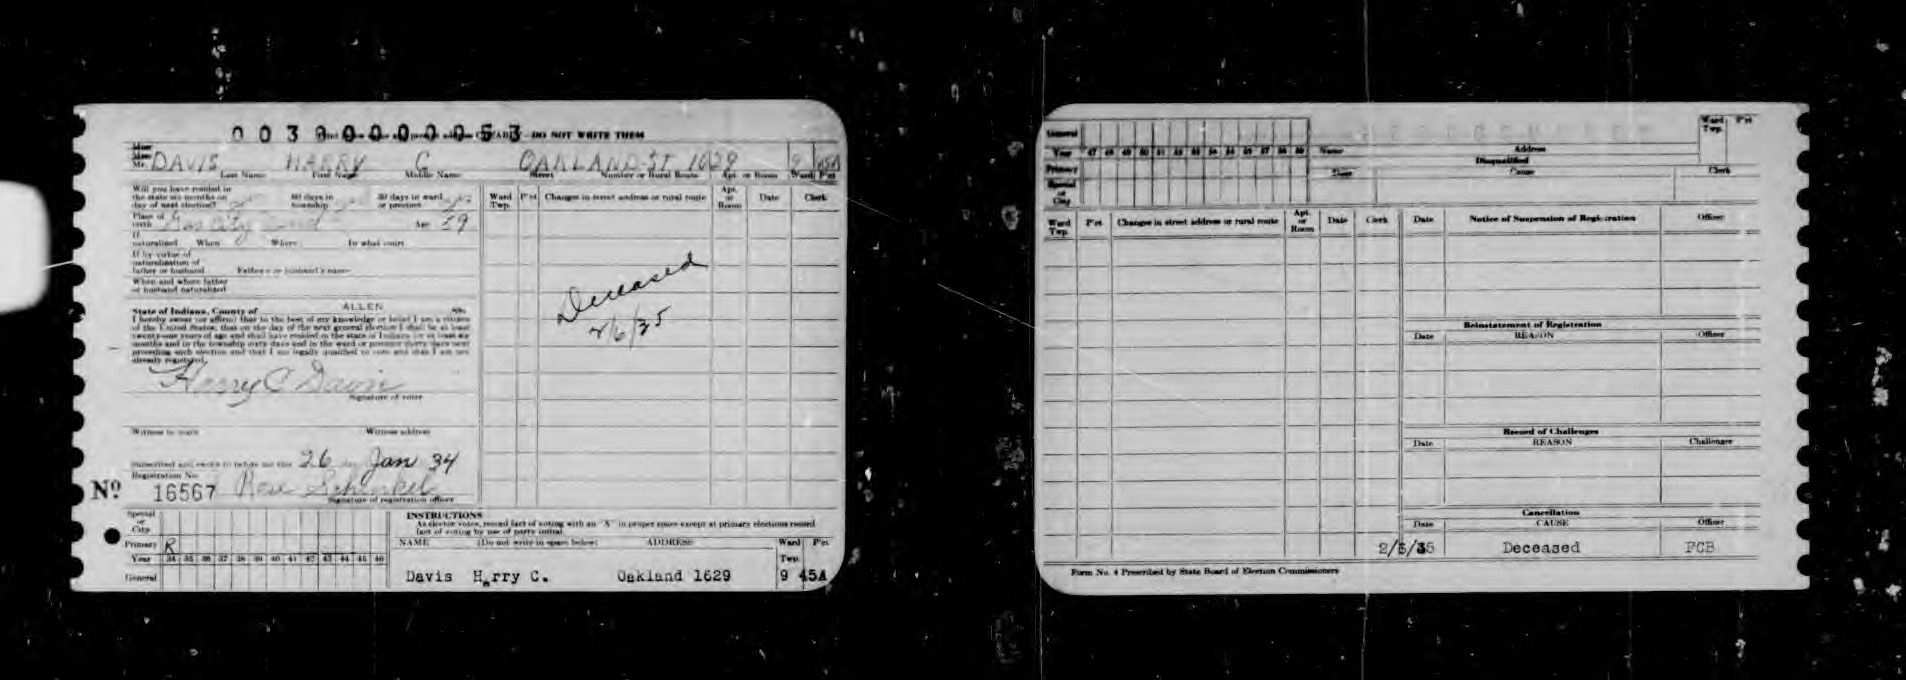 00390000053
DO NOT WRITE THEM
Mr. DAVIS HARRY C OAKLAND ST 1629 9 45A
Last Name First Name Middle Name Street Number or Rural Route Apt. or Room Ward P'ct
Will you have resided in
the state six months on 60 days in 30 days in ward
day of next election? township or precinct
Place of
birth Gas City Ind Age 59
If
naturalized When Where In what court
If by virtue of
naturalization of
father or husband Father's or husband's name
When and where father
or husband naturalized
State of Indiana, County of ALLEN ss:
I hereby swear (or affirm) that to the best of my knowledge or belief I am a citizen
of the United States, that on the day of the next general election I shall be at least
twenty-one years of age and shall have resided in the state of Indiana for at least six
months and in the township sixty days and in the ward or precinct thirty days next
preceding such election and that I am legally qualified to vote and that I am not
already registered.
Harry C Davis
Signature of voter
Witness to mark Witness address
Subscribed and sworn to before me this 26 day Jan 34
Registration No.
No 16567 Rose Schinkel
Signature of registration officer
Ward Twp. P'ct Changes in street address or rural route Apt. or Room Date Clerk
Deceased
2/6/35
Special
or
City
Primary R
Year 34 35 36 37 38 39 40 41 42 43 44 45 46
General
INSTRUCTIONS
As elector votes, record fact of voting with an "X" in proper space except at primary elections record
fact of voting by use of party initial.
NAME (Do not write in space below) ADDRESS Ward Twp. P'ct
Davis Harry C. Oakland 1629 9 45A
General
Year 47 48 49 50 51 52 53 54 55 56 57 58 59
Primary
Special
or
City
Name Address Ward Twp. P'ct
Disqualified
Date Cause Clerk
Ward Twp. P'ct Changes in street address or rural route Apt. or Room Date Clerk
Date Notice of Suspension of Registration Officer
Reinstatement of Registration
Date REASON Officer
Record of Challenges
Date REASON Challenger
Cancellation
Date CAUSE Officer
2/6/35 Deceased FCB
Form No. 4 Prescribed by State Board of Election Commissioners